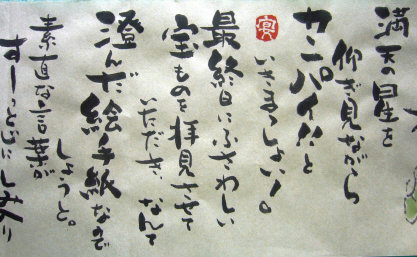 満天の星を
仰ぎ見ながら
カンパイ!!と
いきまっしょい!。
宴
最終日にふさわしい
宝ものを拝見させて
いただき、なんて
澄んだ絵手紙なので
しょうと。
素直な言葉が
すーっと心にしみ入り